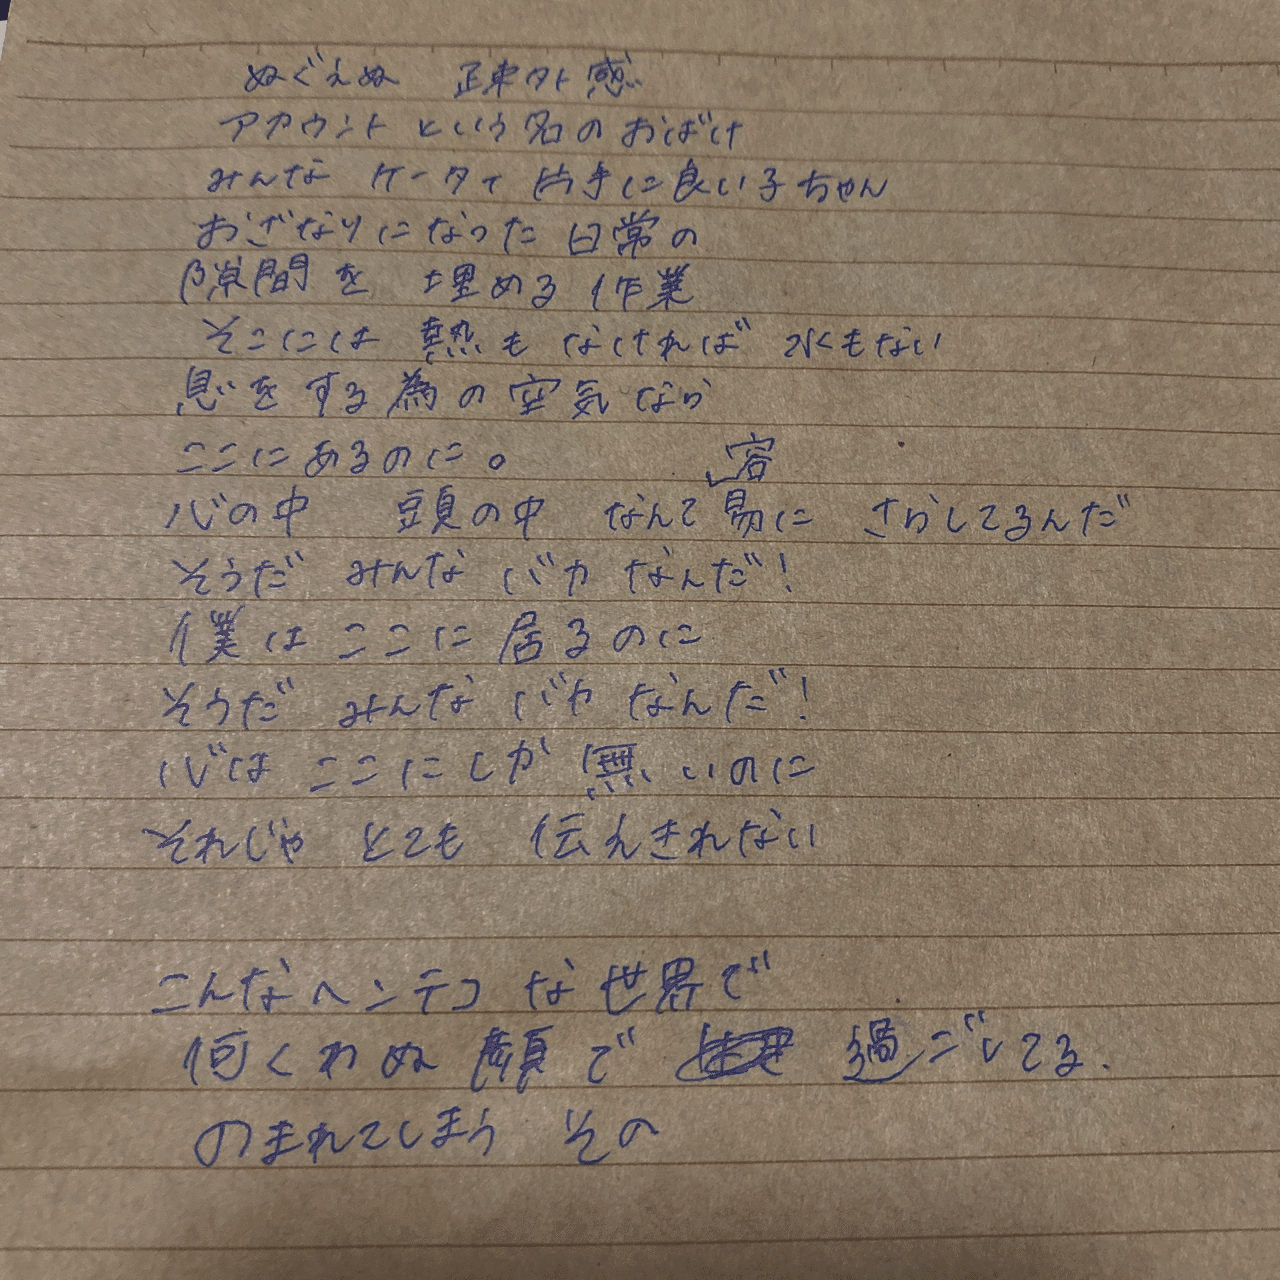 ぬぐえぬ 疎外感
アカウントという名のおばけ
みんな ケータイ 片手に良い子ちゃん
おざなりになった 日常の
隙間を 埋める 作業
そこには 熱も なければ 水もない
息をする為の空気なら
ここにあるのに。
心の中 頭の中 なんて容易に さらしてるんだ
そうだ みんな バカ なんだ!
僕は ここに 居るのに
そうだ みんな バカ なんだ!
心は ここにしか 無いのに
それじゃ とても 伝えきれない
こんなヘンテコな世界で
何くわぬ 顔で 過ごしてる.
のまれてしまう その